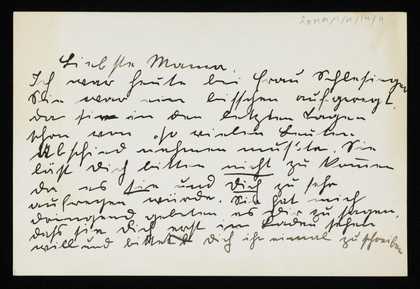 Liebste Mama.
Ich war heute bei Frau Schlesinger
Sie war ein bisschen aufgeregt,
da sie in den letzten Tagen
schon von so vielen Leuten
Abschied nehmen musste. Sie
läst Dich bitten nicht zu kommen
da es sie und dich zu sehr
aufregen würde. Sie hat mich
dringend gebeten es Dir zu sagen,
dass sie Dich erst im sehen
will und bittet Dich ihr einmal zu schreiben